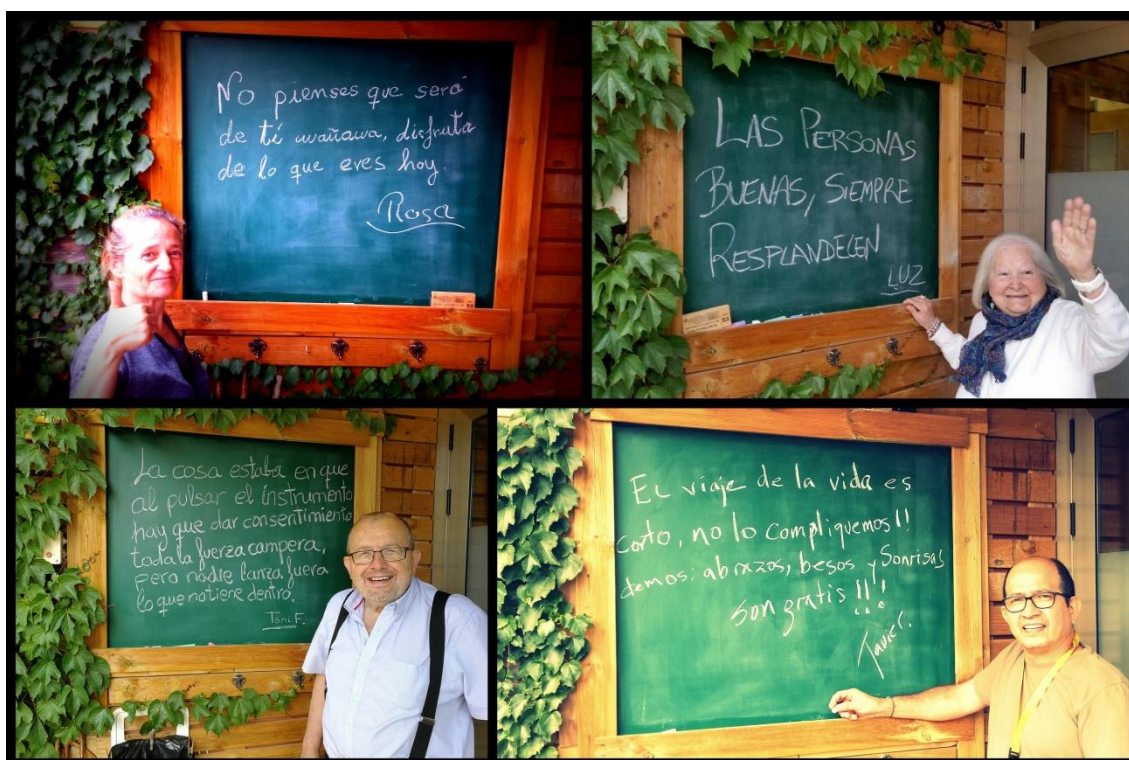 No pienses que será
de tí mañana, disfruta
de lo que eres hoy.
Rosa
LAS PERSONAS
BUENAS, SIEMPRE
RESPLANDECEN
LUZ
La cosa estaba en que
al pulsar el instrumento
hay que dar consentimiento
toda la fuerza campera,
pero nadie lanza fuera
lo que no tiene dentro.
Toni F.
EL viaje de la vida es
corto, no lo compliquemos!!
demos: abrazos, besos y Sonrisas
son gratis!!!
Javier.